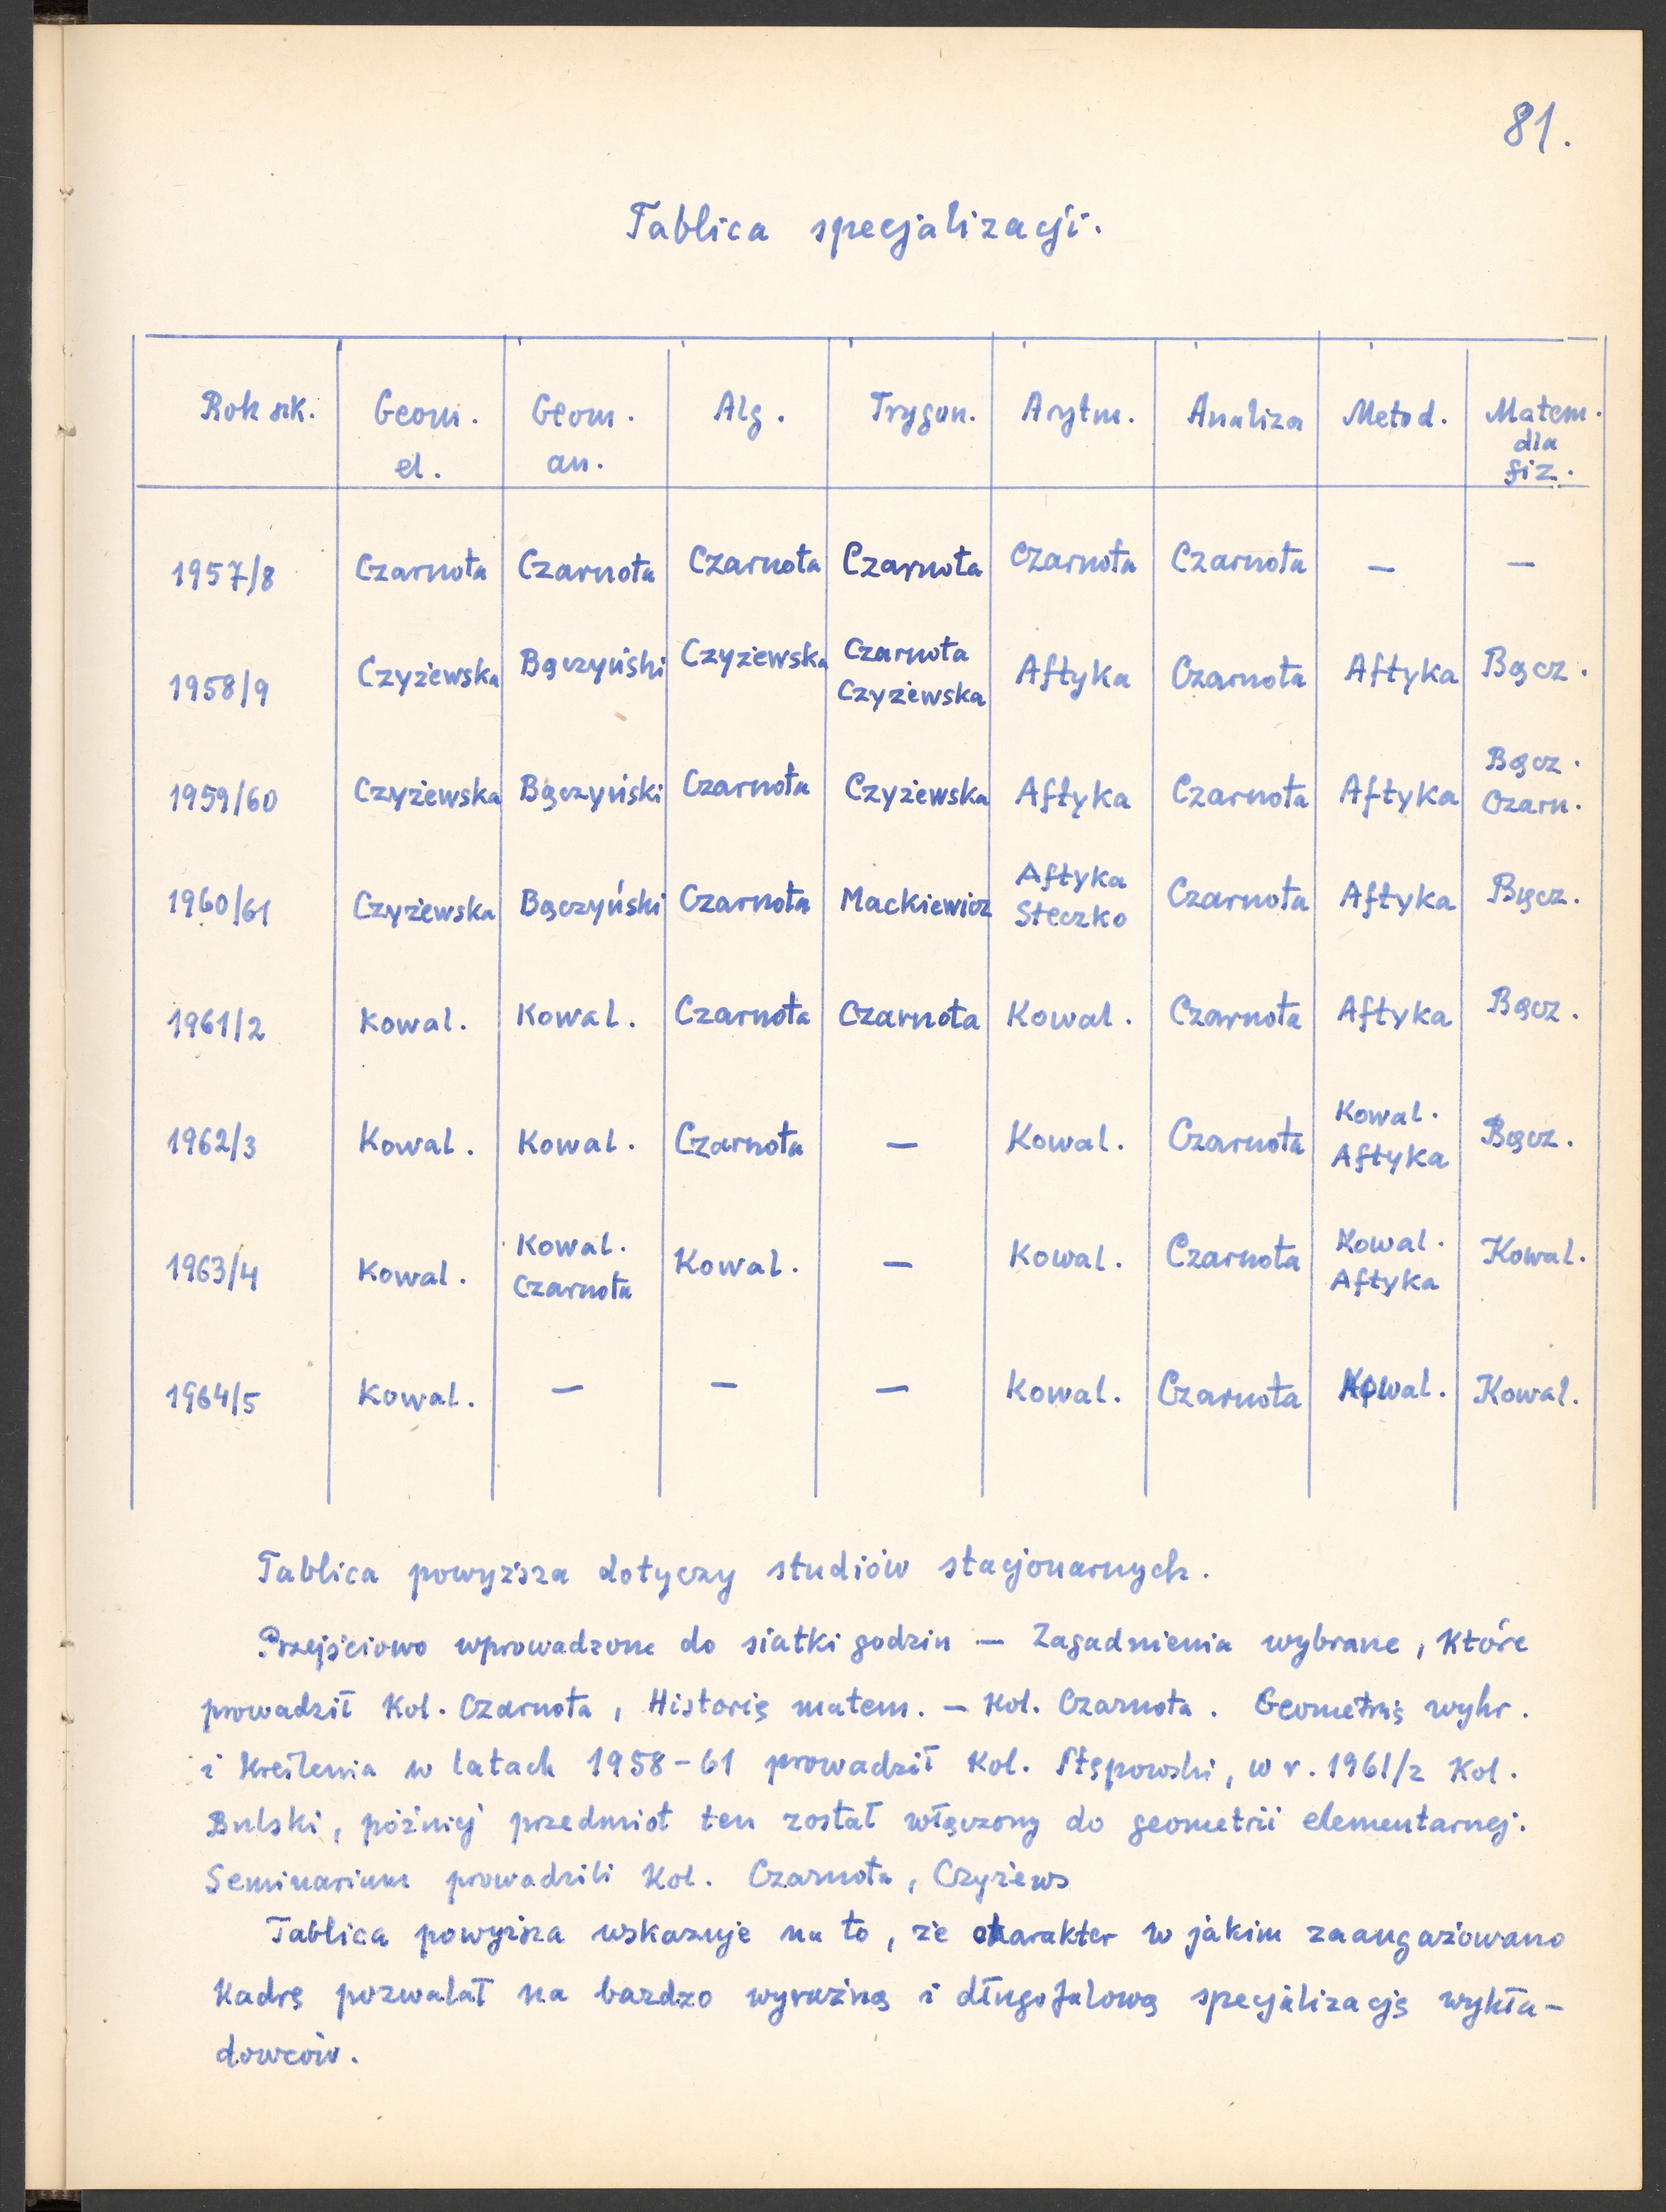 81.
Tablica specjalizacji.
Rok szk. Geom. el. Geom. an. Alg. Trygon. Arytm. Analiza Metod. Matem. dla fiz.
1957/8 Czarnota Czarnota Czarnota Czarnota Czarnota Czarnota — —
1958/9 Czyżewska Bączyński Czyżewska Czarnota Czyżewska Aftyka Czarnota Aftyka Bącz.
1959/60 Czyżewska Bączyński Czarnota Czyżewska Aftyka Czarnota Aftyka Bącz. Czarn.
1960/61 Czyżewska Bączyński Czarnota Mackiewicz Aftyka Steczko Czarnota Aftyka Bącz.
1961/2 Kowal. Kowal. Czarnota Czarnota Kowal. Czarnota Aftyka Bącz.
1962/3 Kowal. Kowal. Czarnota — Kowal. Czarnota Kowal. Aftyka Bącz.
1963/4 Kowal. Kowal. Czarnota Kowal. — Kowal. Czarnota Kowal. Aftyka Kowal.
1964/5 Kowal. — — — Kowal. Czarnota Kowal. Kowal.
Tablica powyższa dotyczy studiów stacjonarnych.
Przejściowo wprowadzone do siatki godzin — Zagadnienia wybrane, które
prowadził Kol. Czarnota, Historię matem. — Kol. Czarnota. Geometrię wykr.
i Kreślenia w latach 1958-61 prowadził Kol. Stępowski, w r. 1961/2 Kol.
Bulski, później przedmiot ten został włączony do geometrii elementarnej.
Seminarium prowadzili Kol. Czarnota, Czyżews
Tablica powyższa wskazuje na to, że charakter w jakim zaangażowano
Kadrę pozwalał na bardzo wyraźną i długofalową specjalizację wykła-
dowców.